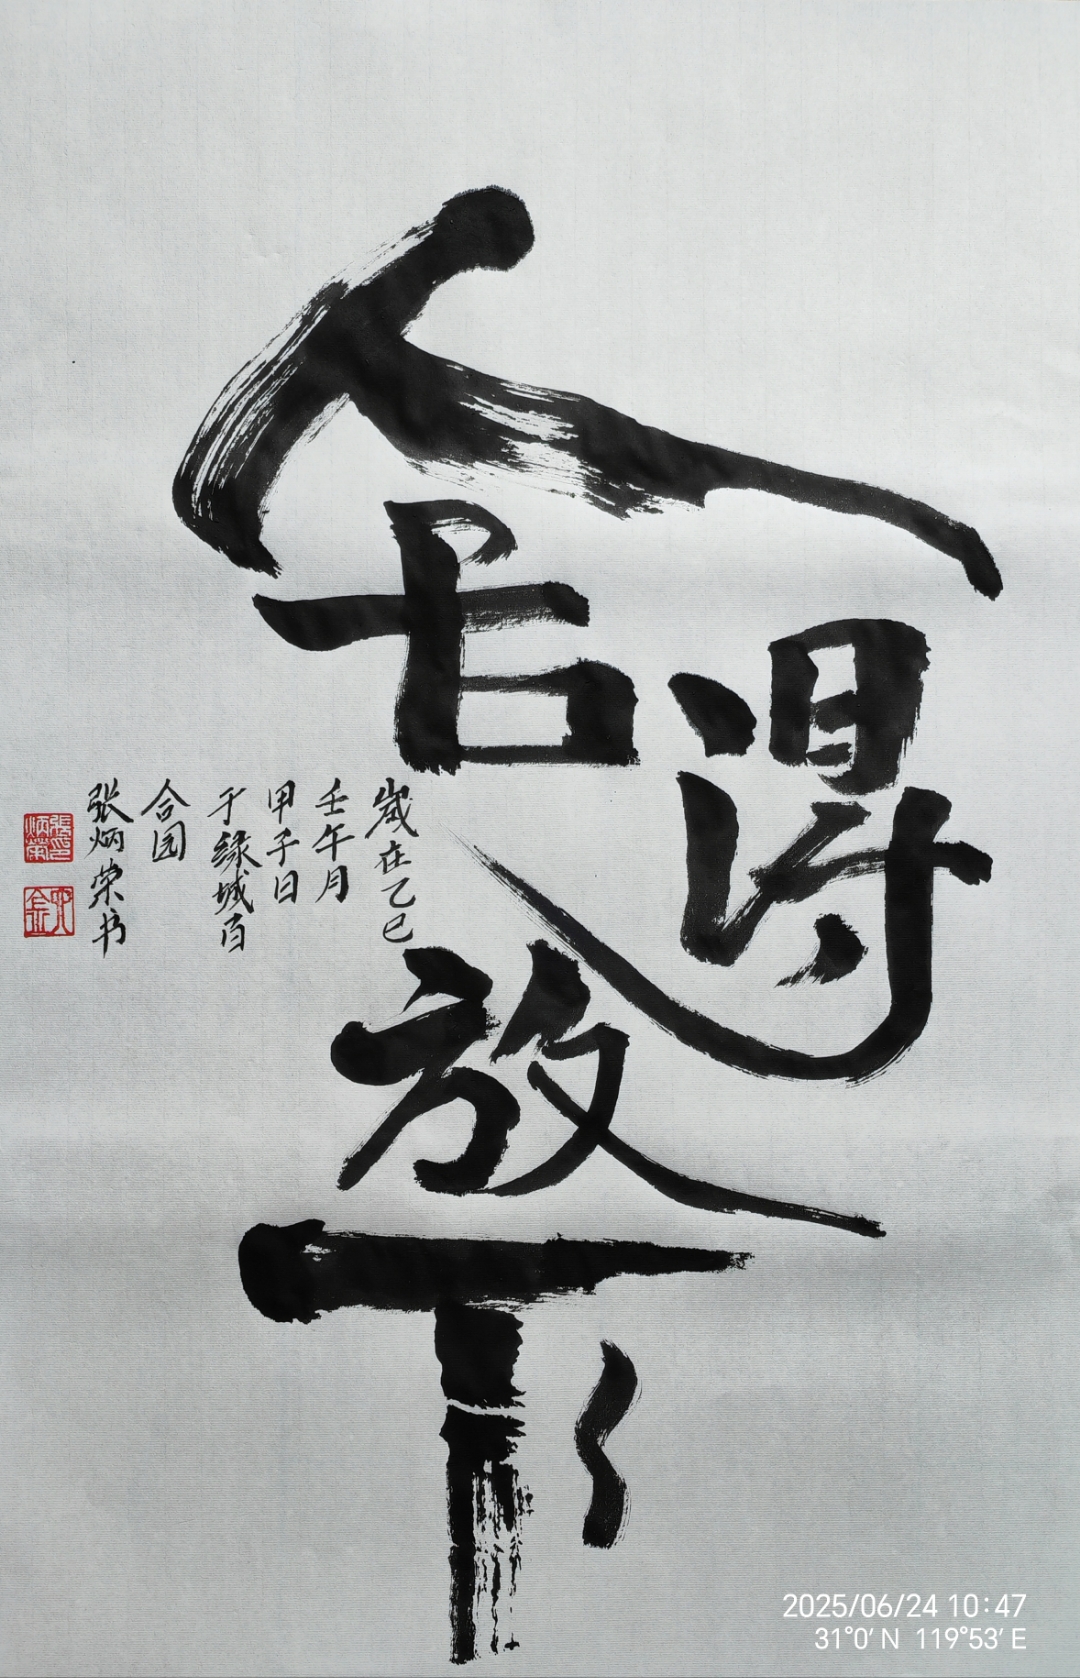 舍得
放下
歲在乙巳
壬午月
甲子日
于緑城百
合园
张炳荣书
張炳榮印
2025/06/24 10:47
31°0′ N 119°53′ E